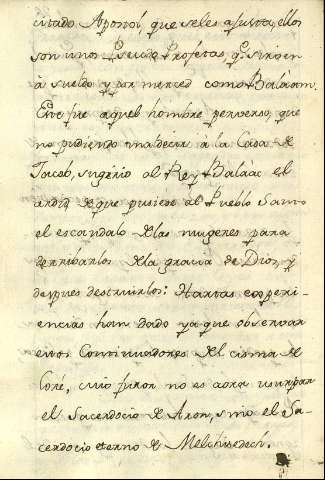 citado Apostol que seles asusta, ellos
son unos Pseudo Profetas, q.e sirven
à sueldo y por merced como Balaam.
Este fue aquel hombre perverso, que
no pudiendo maldecir à la Casa de
Jacob, sugirio al Rey Balàac el
ardid de que pusiese al Pueblo Santo
el escandalo de las mugeres para
derribarlos de la gracia de Dios, y
despues destruirlos: Hartas experi-
encias han dado ya que observar
estos Continuadores del cisma de
Coré, cuio furor no es aora usurpar
el Sacerdocio de Aron, sino el Sa-
cerdocio eterno de Melchisedech.